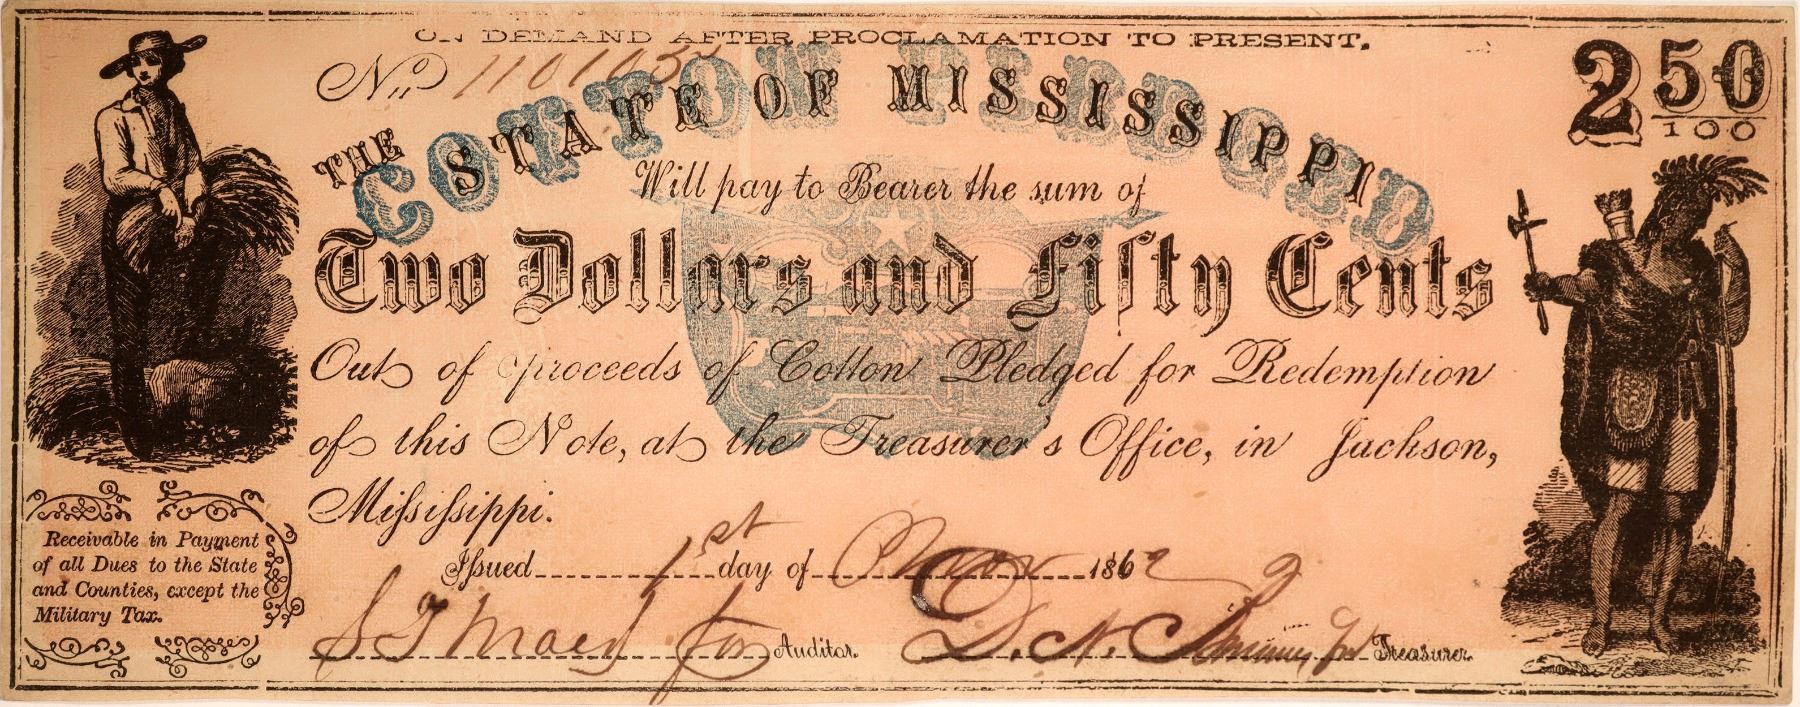 ON DEMAND AFTER PROCLAMATION TO PRESENT.
No. 1101032
2 50/100
THE STATE OF MISSISSIPPI
COTTON PLEDGED
Will pay to Bearer the sum of
Two Dollars and Fifty Cents
Out of proceeds of Cotton Pledged for Redemption
of this Note, at the Treasurer's Office, in Jackson,
Mississippi.
Issued 1st day of 1862
Auditor. Treasurer.
Receivable in Payment
of all Dues to the State
and Counties, except the
Military Tax.